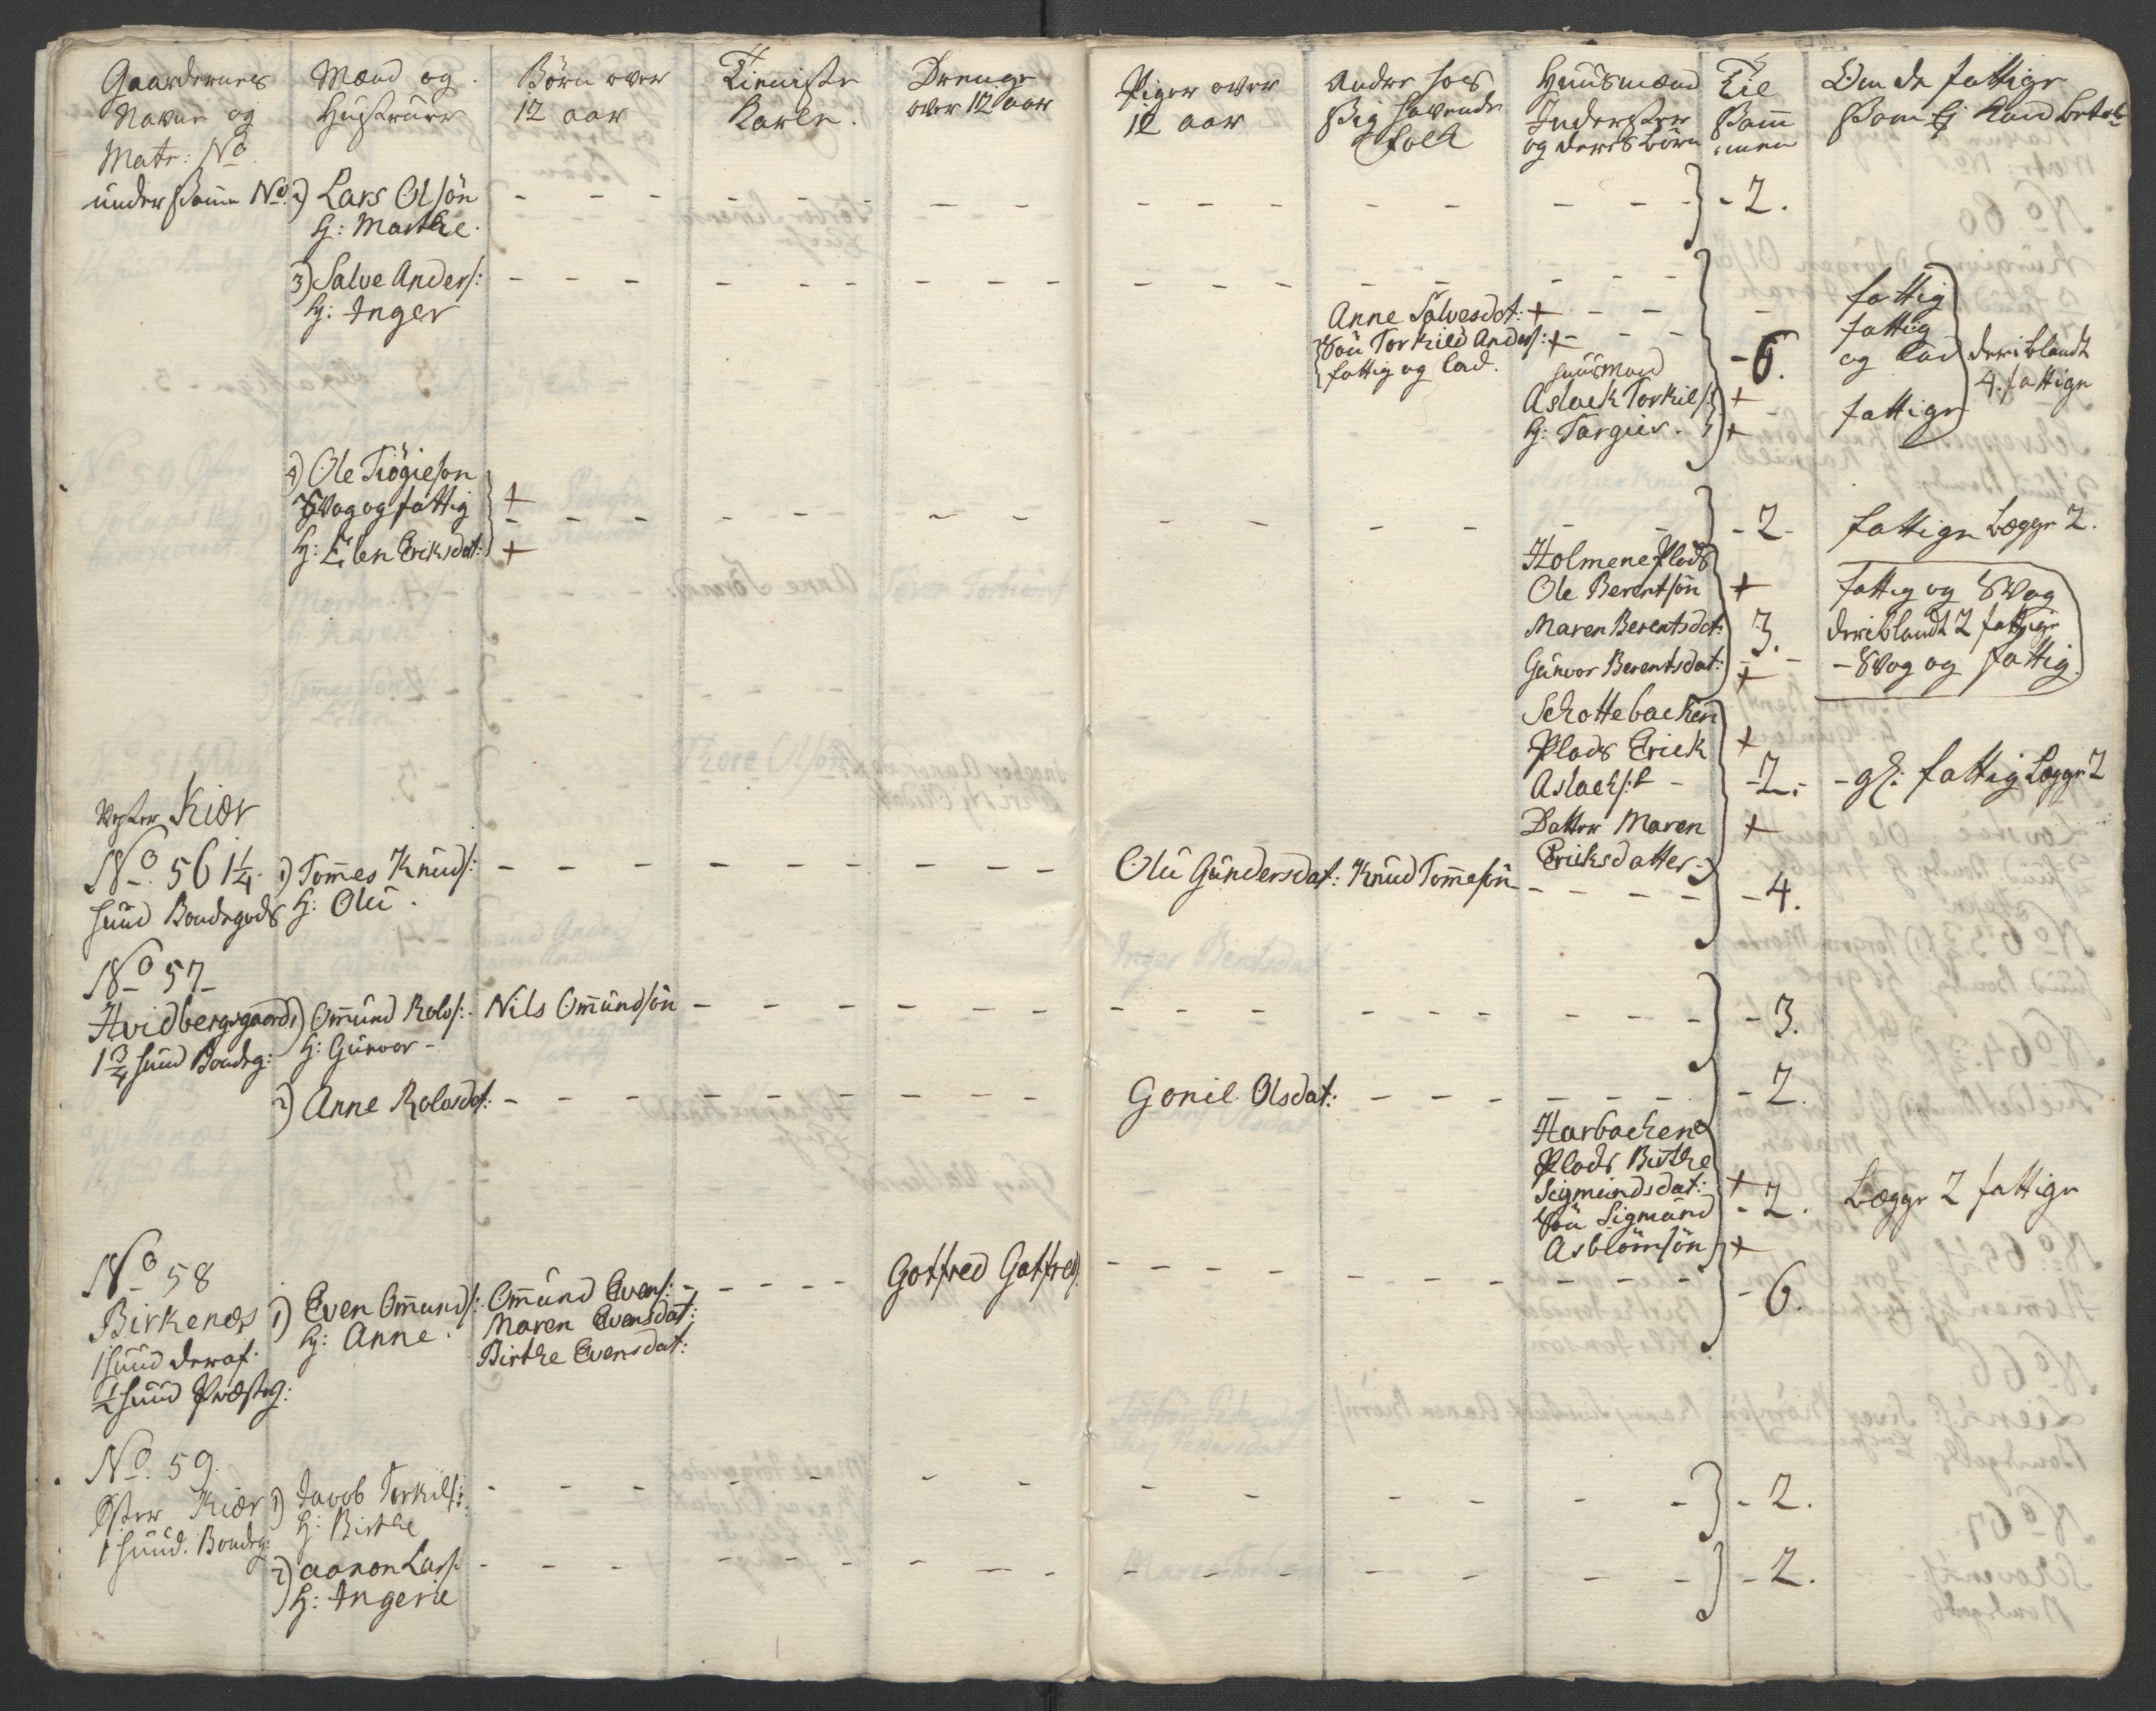 Gaardernes
Navne og
Matr: No
Mænd og
Hustruer
Børn over
12 aar
Tieniste
Karle.
Drenge
over 12 aar
Piger over
12 aar
Andre hos
Sig havende
folk
Huusmænd
Inderster
og deres børn
Til
Sam
men
Om de fattige
Som Ej kand betale
under Samme No.
2) Lars Olsøn
H: Marthe.
- 2.
3) Salve Anders:
H: Inger
Anne Salvesdot: +
Søn Torkild Anders: +
fattig og lad.
huusmand
Aslack Torkils: +
H: Targier. +
- 6.
fattig
fattig
og lad
fattige
deriblandt
4. fattige
4) Ole Tiøgiesøn
Svag og fattig +
H: Eilen Eriksdat: +
- 2 -
fattige begge 2.
Holmene Plads
Ole Berentsøn +
Maren Berentsdot:
Gunvor Berentsdat: +
3.
fattig og Svag
deriblandt 2 fattige
- Svag og fattig.
Schottebacken
Plads Erick +
Aslachs:
Datter Maren +
Ericksdatter
- 2. -
- gl: fattig begge 2
Vester Kiær
No. 56 1 1/4
huud Bondegods
1) Tommes Knuds:
H: Olu.
Olu Gundersdat:
Knud Tommesøn
- 4.
No 57
Hvidbergsgaard
1 3/4 huud Bondeg:
1) Ommund Rolos:
H: Gunvor -
Nils Ommundsøn
- 3.
2) Anne Rolosdot:
Gonil Olsdat:
- 2.
Harbackene
Plads Birthe
Sigmundsdat: +
Søn Sigmund
Asbiørnsøn +
- 2.
begge 2 fattige
No 58
Birkenes
1 huud deraf.
1/2 huud Præsteg:
1) Even Ommunds:
H: Anne.
Ommund Evens:
Maren Evensdat:
Birthe Evensdat:
Gotfred Gotfreds:
- 6.
No. 59.
Øster Kiær
1 huud. Bondeg:
1) Jacob Torkils:
H: Birthe
- 2.
2) Aanon Lars:
H: Ingerie
- 2.